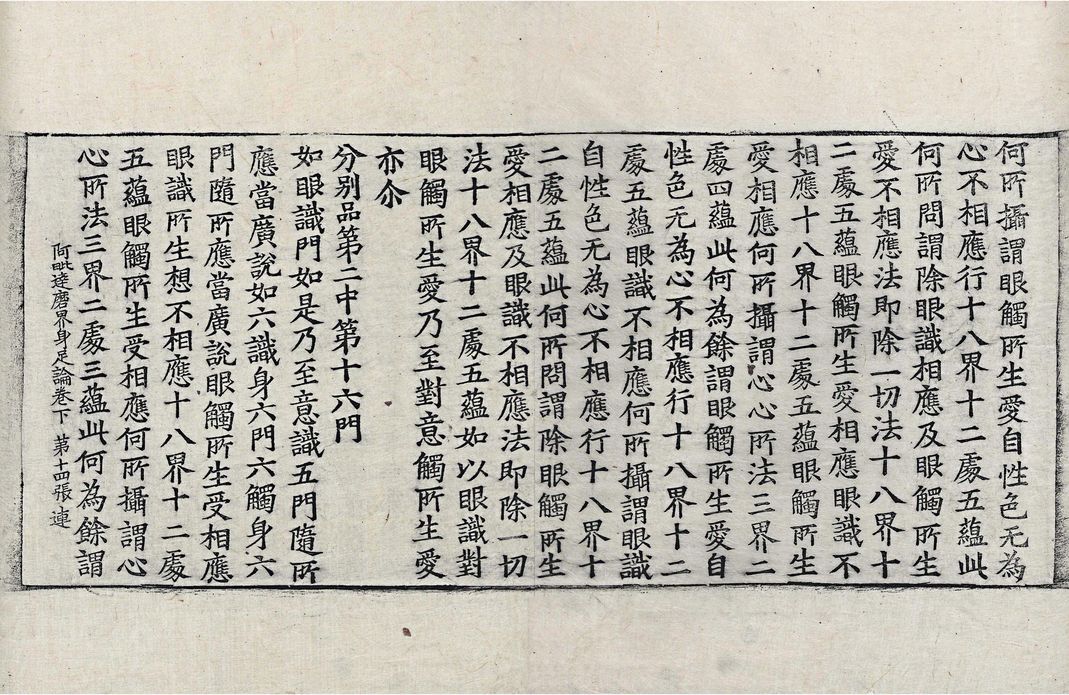 何所攝謂眼觸所生愛自性色无為
心不相應行十八界十二處五蘊此
何所問謂除眼識相應及眼觸所生
愛不相應法即除一切法十八界十
二處五蘊眼觸所生愛相應眼識不
相應十八界十二處五蘊眼觸所生
愛相應何所攝謂心心所法三界二
處四蘊此何為餘謂眼觸所生愛自
性色无為心不相應行十八界十二
處五蘊眼識不相應何所攝謂眼識
自性色无為心不相應行十八界十
二處五蘊此何所問謂除眼觸所生
愛相應及眼識不相應法即除一切
法十八界十二處五蘊如以眼識對
眼觸所生愛乃至對意觸所生愛
亦尒
分別品第二中第十六門
如眼識門如是乃至意識五門隨所
應當廣說如六識身六門六觸身六
門隨所應當廣說眼觸所生受相應
眼識所生想不相應十八界十二處
五蘊眼觸所生受相應何所攝謂心
心所法三界二處三蘊此何為餘謂
阿毗達磨界身足論卷下 第十四張 連